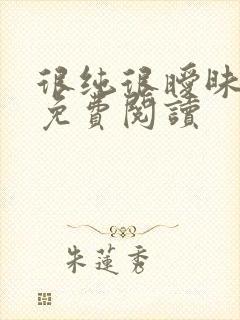 很纯很曖昧
免費閱讀
朱蓮秀